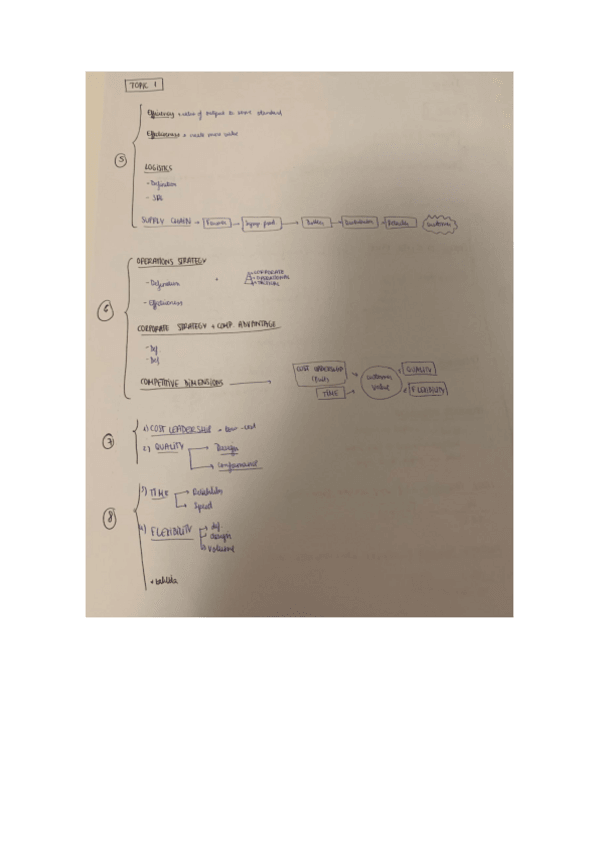 TOPIC 1
5
Efficiency = ratio of output to some standard
Effectiveness = create more value
LOGISTICS
- Definition
SUPPLY CHAIN → Bottler Distributor Retailer Customer
6
OPERATIONS STRATEGY
CORPORATE
OPERATIONAL
TACTICAL
- Definition
- Effectiveness
CORPORATE STRATEGY + COMP. ADVANTAGE
- Def
- Def
COMPETITIVE DIMENSIONS → COST LEADERSHIP TIME customer value QUALITY FLEXIBILITY
7
1) COST LEADERSHIP = low-cost
2) QUALITY → Design
→ conformance
8
3) TIME → Reliability
→ Speed
4) FLEXIBILITY → def
→ design
→ volume